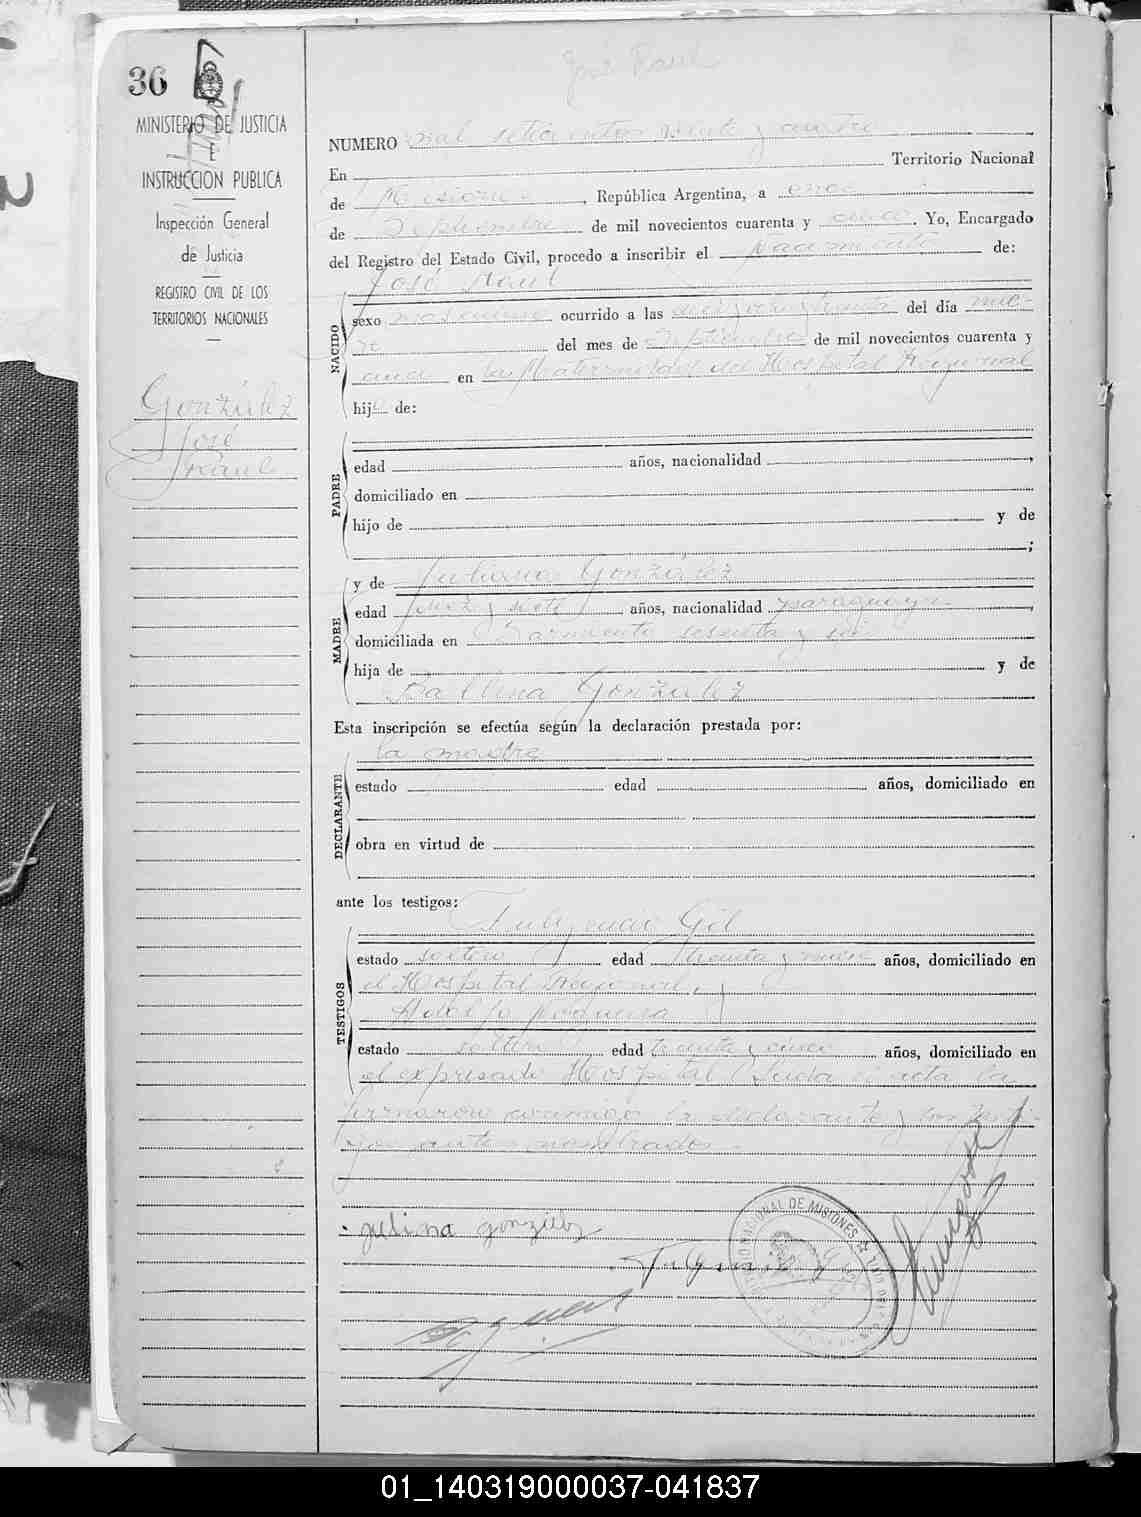 José Raul
36
MINISTERIO DE JUSTICIA
E
INSTRUCCION PUBLICA
Inspección General
de Justicia
REGISTRO CIVIL DE LOS
TERRITORIOS NACIONALES
González
José
Raul
NUMERO mil setecientos veinte y cuatro
En Territorio Nacional
de Misiones, República Argentina, a once
de Septiembre de mil novecientos cuarenta y cinco. Yo, Encargado
del Registro del Estado Civil, procedo a inscribir el nacimiento de:
José Raul
NACIDO
sexo masculino ocurrido a las y treinta del día nue-
ve del mes de Septiembre de mil novecientos cuarenta y
cinco en la Maternidad del Hospital Regional
hijo de:
PADRE
edad años, nacionalidad ,
domiciliado en
hijo de y de
;
MADRE
y de Juliana González
edad diez y siete años, nacionalidad paraguaya ,
domiciliada en Sarmiento sesenta y seis
hija de y de
González
Esta inscripción se efectúa según la declaración prestada por:
la madre
DECLARANTE
estado edad años, domiciliado en
obra en virtud de
ante los testigos:
Fulgencio Gil
TESTIGOS
estado soltero edad treinta y nueve años, domiciliado en
el Hospital Regional,
Adolfo
estado soltero edad treinta y cinco años, domiciliado en
el expresado Hospital Leida el acta la
firmaron conmigo la declarante y los testi-
gos antes nombrados.
julina gonzilez
NACIONAL DE MISIONES
01_140319000037-041837